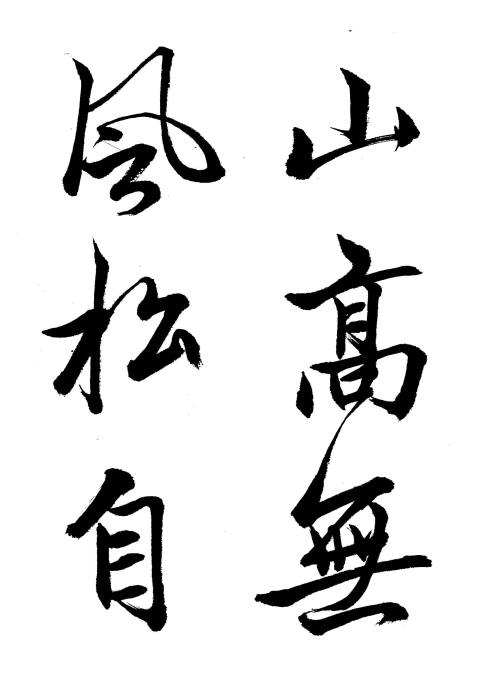 山髙無
風松自